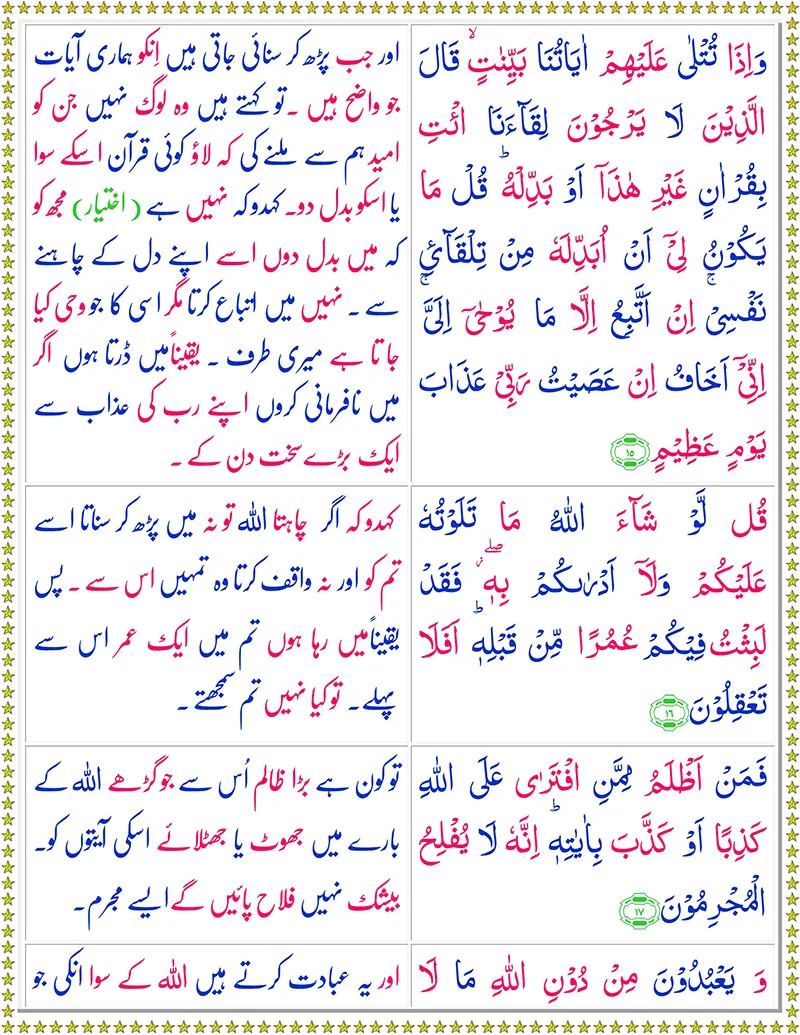 وَاِذَا تُتْلٰى عَلَيْهِمْ اٰيَاتُنَا بَيِّنٰتٍ ۙ قَالَ
الَّذِيْنَ لَا يَرْجُوْنَ لِقَآءَنَا ائْتِ
بِقُرْاٰنٍ غَيْرِ هٰذَاۤ اَوْ بَدِّلْهُ ؕ قُلْ مَا
يَكُوْنُ لِيْۤ اَنْ اُبَدِّلَهٗ مِنْ تِلْقَآئِ
نَفْسِيْ ۚ اِنْ اَتَّبِعُ اِلَّا مَا يُوْحٰۤى اِلَيَّ ۚ
اِنِّيْۤ اَخَافُ اِنْ عَصَيْتُ رَبِّيْ عَذَابَ
يَوْمٍ عَظِيْمٍ ۱۵
اور جب پڑھ کر سنائی جاتی ہیں اِنکو ہماری آیات
جو واضح ہیں ۔ تو کہتے ہیں وہ لوگ نہیں جن کو
امید ہم سے ملنے کی کہ لاؤ کوئی قرآن اسکے سوا
یا اسکو بدل دو۔ کہدو کہ نہیں ہے (اختیار) مجھ کو
کہ میں بدل دوں اسے اپنے دل کے چاہنے
سے ۔ نہیں میں اتباع کرتا مگر اسی کا جو وحی کیا
جاتا ہے میری طرف ۔ یقیناً میں ڈرتا ہوں اگر
میں نافرمانی کروں اپنے رب کی عذاب سے
ایک بڑے سخت دن کے ۔
قُل لَّوْ شَآءَ اللّٰهُ مَا تَلَوْتُهٗ
عَلَيْكُمْ وَلَاۤ اَدْرٰىكُمْ بِهٖ ۖ فَقَدْ
لَبِثْتُ فِيْكُمْ عُمُرًا مِّنْ قَبْلِهٖ ؕ اَفَلَا
تَعْقِلُوْنَ ۱۶
کہدو کہ اگر چاہتا اللہ تو نہ میں پڑھ کر سناتا اسے
تم کو اور نہ واقف کرتا وہ تمہیں اس سے ۔ پس
یقیناً میں رہا ہوں تم میں ایک عمر اس سے
پہلے۔ تو کیا نہیں تم سمجھتے ۔
فَمَنْ اَظْلَمُ مِمَّنِ افْتَرٰى عَلَى اللّٰهِ
كَذِبًا اَوْ كَذَّبَ بِاٰيٰتِهٖ ؕ اِنَّهٗ لَا يُفْلِحُ
الْمُجْرِمُوْنَ ۱۷
تو کون ہے بڑا ظالم اُس سے جو گڑھے اللہ کے
بارے میں جھوٹ یا جھٹلائے اسکی آیتوں کو۔
بیشک نہیں فلاح پائیں گے ایسے مجرم۔
وَ يَعْبُدُوْنَ مِنْ دُوْنِ اللّٰهِ مَا لَا
اور یہ عبادت کرتے ہیں اللہ کے سوا انکی جو